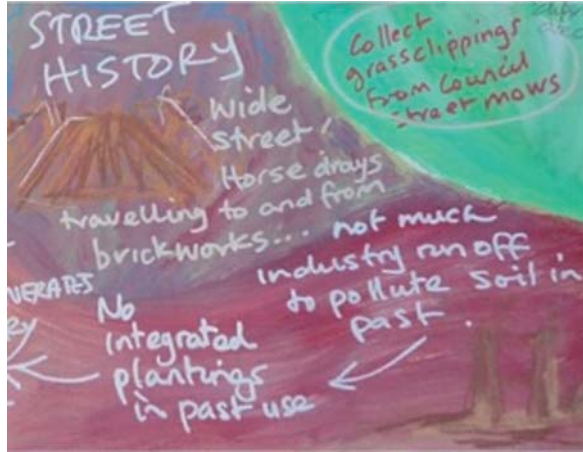 STREET
HISTORY
Collect
grassclippings
from Council
street mows
Wide
street!
Horse drays
travelling to and from
brickworks... not much
industry run off
to pollute soil in
past.
No
integrated
plantings
in past use